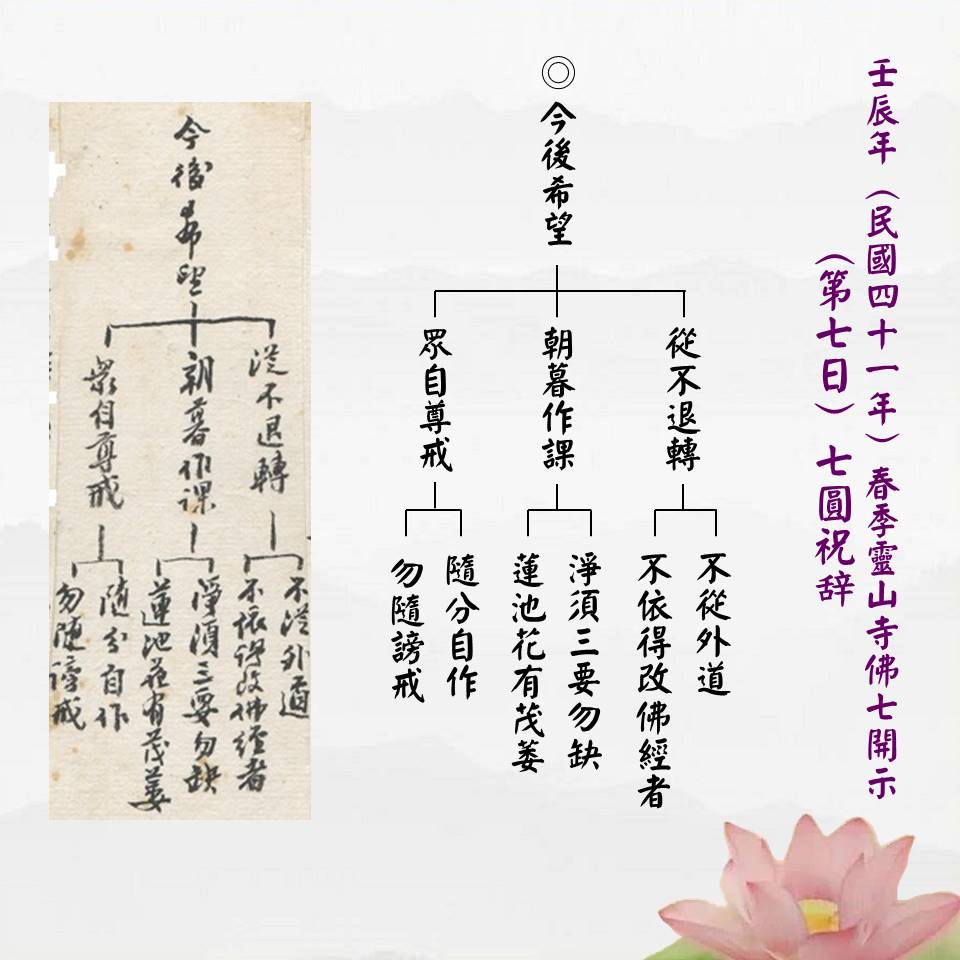 壬辰年（民國四十一年）春季靈山寺佛七開示
（第七日）七圓祝辞
◎今後希望
從不退轉
不從外道
不依得改佛經者
朝暮作課
淨須三要勿缺
蓮池花有茂萎
眾自尊戒
隨分自作
勿隨謗戒
今後希望
從不退轉
不從外道
不依得改佛經者
朝暮作課
淨須三要勿缺
蓮池花有茂萎
眾自尊戒
隨分自作
勿隨謗戒